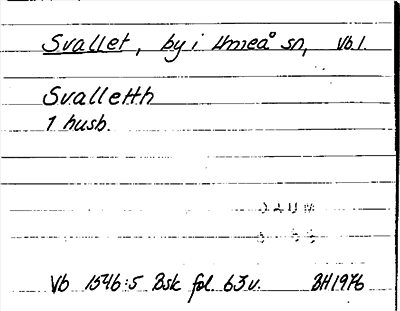 Svallet, by i Umeå sn, Vb l.
Svalletth
1 husb.
DAUM
Vb 1546:5 Bsk fol. 63v. BH1976